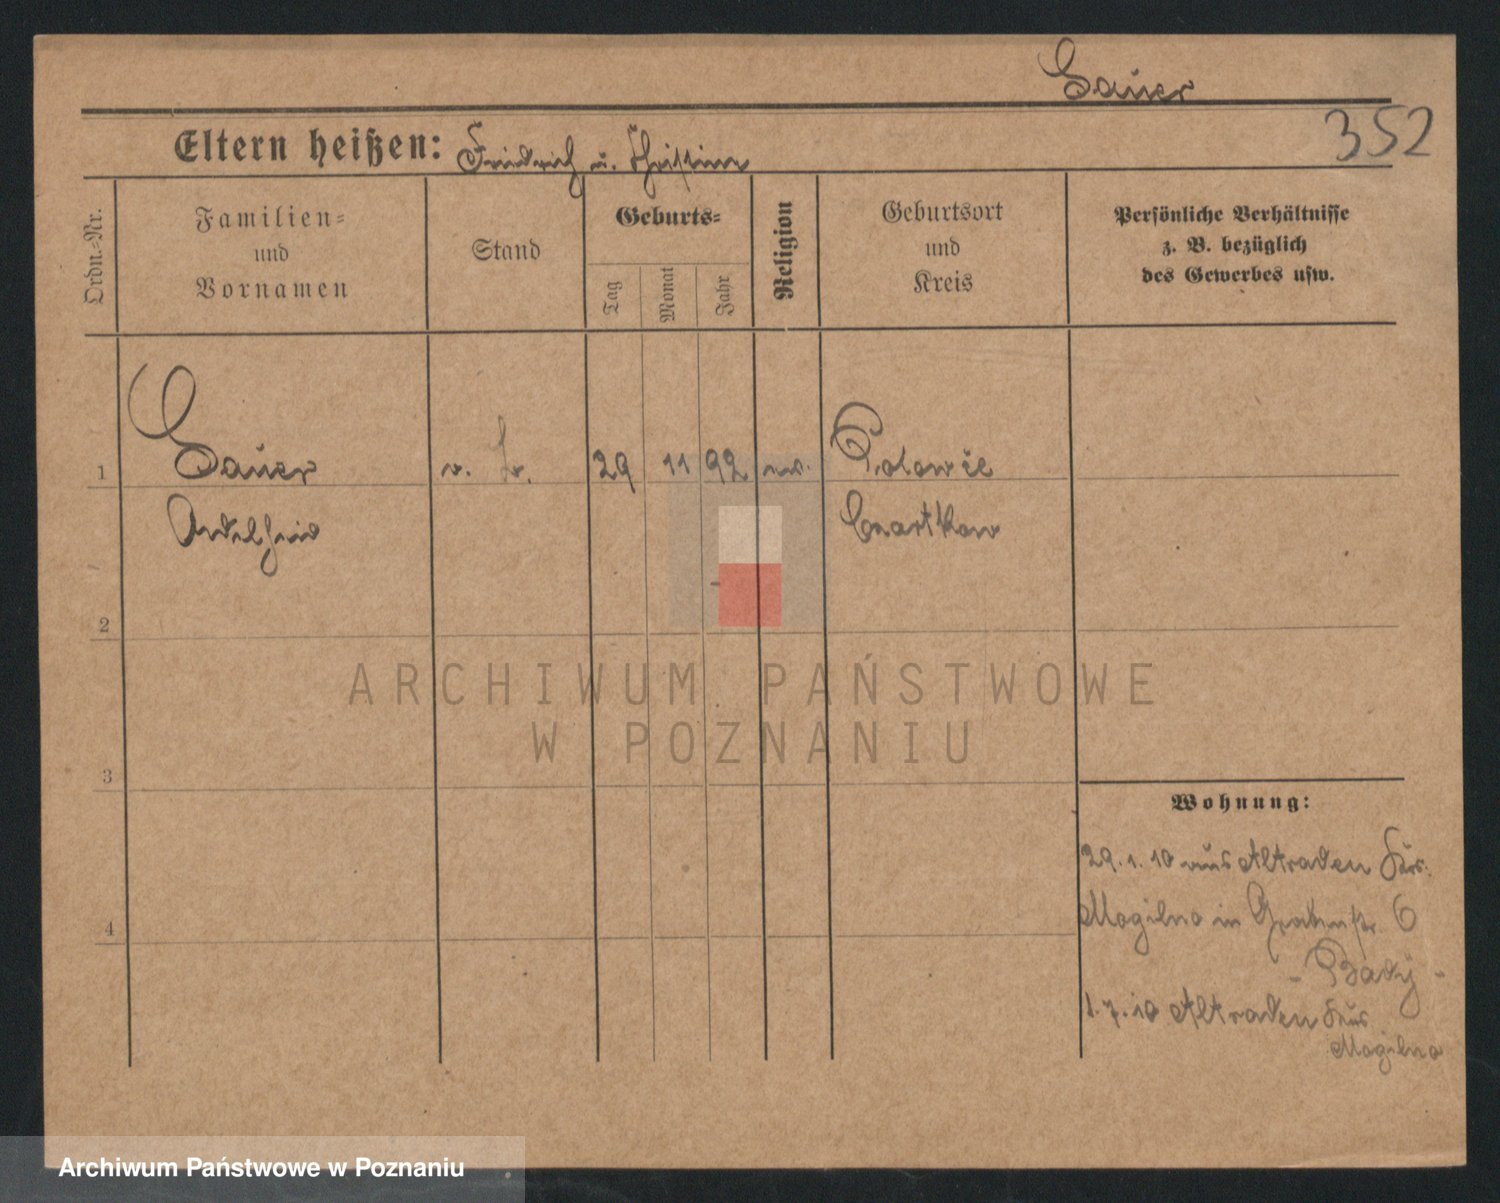 Sauer
352
Eltern heißen: Friedrich u. Christine
Ordn.-Nr.
Familien-
und
Vornamen
Stand
Geburts-
Tag
Monat
Jahr
Religion
Geburtsort
und
Kreis
Persönliche Verhältnisse
z. B. bezüglich
des Gewerbes usw.
1
Sauer
29
11
92
Adelheid
Czarnikau
2
ARCHIWUM PAŃSTWOWE
W POZNANIU
3
Wohnung:
29.1.10 aus Altraden Krs.
Mogilno in Grabenstr. 6
4
1.7.10 Altraden Krs
Mogilno
Archiwum Państwowe w Poznaniu